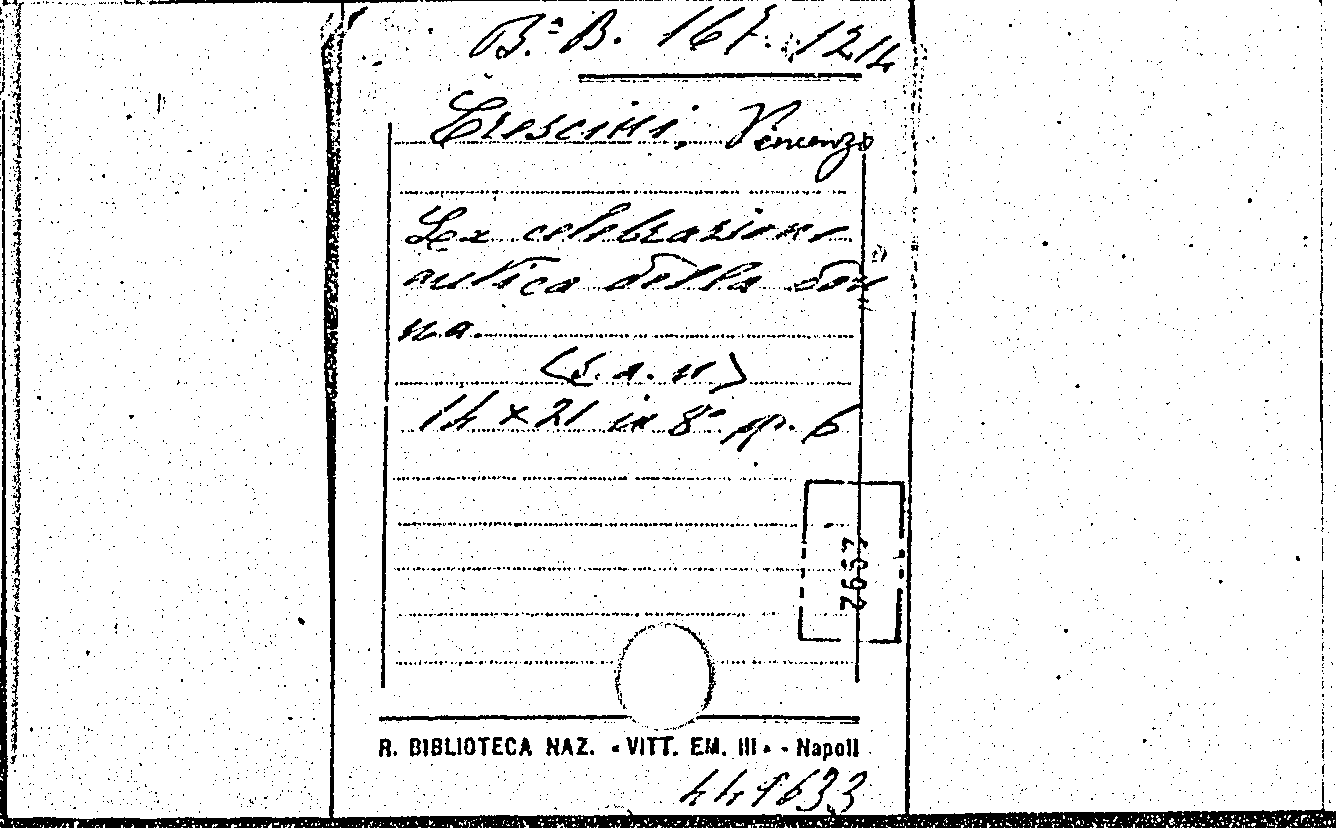 Bª B. 167. 1214
Crescini, Vincenzo
La celebrazione
antica della don
na.
(S. a. n)
14 x 21 in 8° pp. 6
2657
R. BIBLIOTECA NAZ. « VITT. EM. III » - Napoli
441633